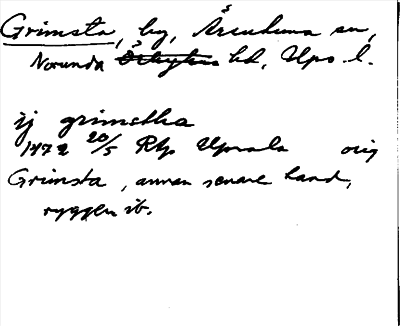 Grimsta, by, Ärentuna sn,
Norunda hd, Upps l.
ij grimstha
1472 20/5 Rtp Uppsala orig
Grimsta, annan senare hand,
ryggen ib.